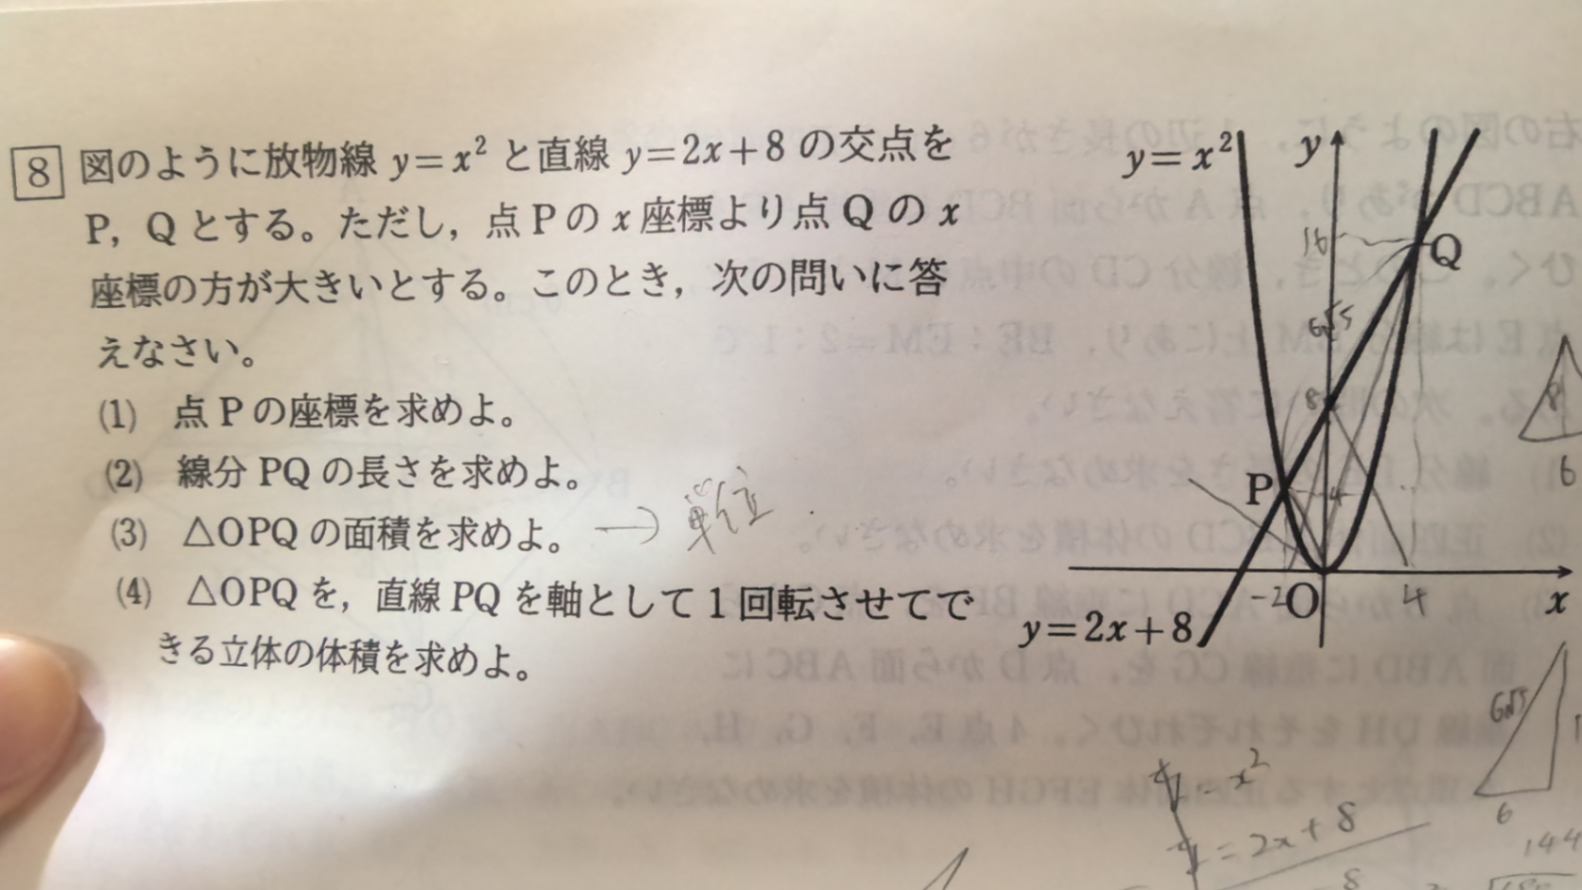 8 図のように放物線 y=x² と直線 y=2x+8 の交点を
P, Q とする。ただし, 点 P の x 座標より点 Q の x
座標の方が大きいとする。このとき, 次の問いに答
えなさい。
(1) 点 P の座標を求めよ。
(2) 線分 PQ の長さを求めよ。
(3) △OPQ の面積を求めよ。 →
(4) △OPQ を, 直線 PQ を軸として 1 回転させてで
きる立体の体積を求めよ。
y=x²
y
16
Q
6√5
8
P
4
-2
O
4
x
y=2x+8
8
6
6√5
6
y=x²
y=2x+8
8
144